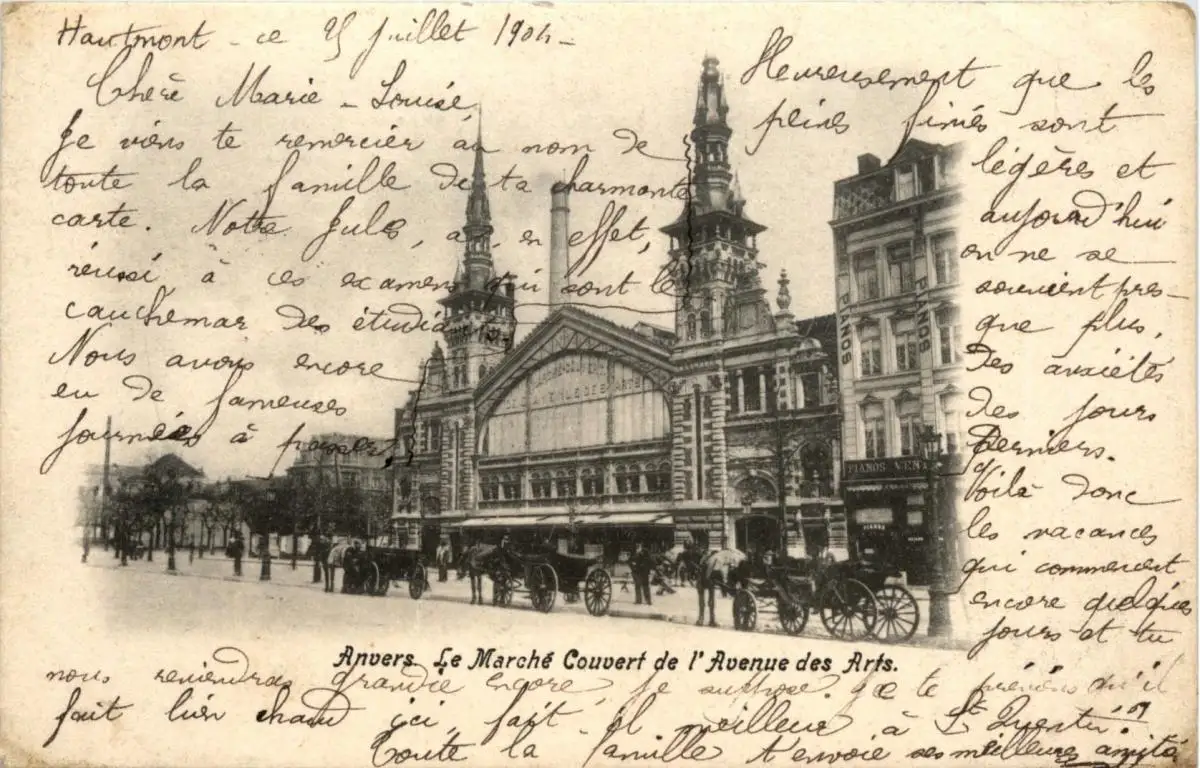 Hautmont - ce 25 juillet 1904 -
Chère Marie - Louise,
Je viens te remercier au nom de
toute la famille de ta charmante
carte. Notre Jules, a, en effet,
réussi à ces examens qui sont le
cauchemar des étudiants.
Nous avons encore
eu de fameuses
journées à passer,
Heureusement que les
peines finies sont
légères et
aujourd'hui
on ne se
souvient pres-
que plus,
des anxiétés
des jours
derniers.
Voilà donc
les vacances
qui commencent
encore quelques
jours et tu
nous reviendras grandie encore je suppose. Je te préviens qu'il
fait bien chaud ici, fait-il meilleur à St Quentin?
Toute la famille t'envoie ses meilleures amitiés
PIANOS
PIANOS
PIANOS VENT
Anvers Le Marché Couvert de l'Avenue des Arts.